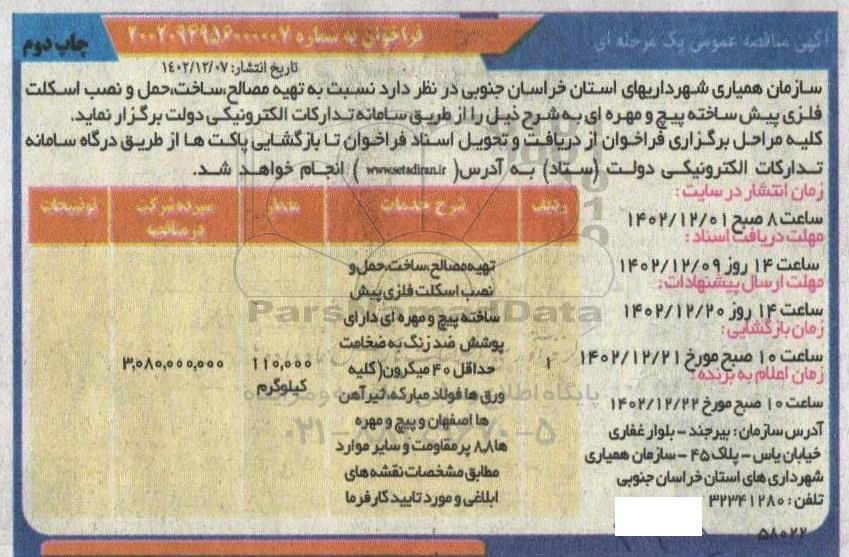 آگهی مناقصه عمومی یک مرحله ای
فراخوان به شماره ۲۰۰۲۰۹۴۹۵۶۰۰۰۰۰۷
چاپ دوم
تاریخ انتشار: ۱۴۰۲/۱۲/۰۷
سازمان همیاری شهرداریهای استان خراسان جنوبی در نظر دارد نسبت به تهیه مصالح،ساخت،حمل و نصب اسکلت
فلزی پیش ساخته پیچ و مهره ای به شرح ذیل را از طریق سامانه تدارکات الکترونیکی دولت برگزار نماید.
کلیه مراحل برگزاری فراخوان از دریافت و تحویل اسناد فراخوان تا بازگشایی پاکت ها از طریق درگاه سامانه
تدارکات الکترونیکی دولت (ستاد) به آدرس( www.setadiran.ir ) انجام خواهد شد.
زمان انتشار در سایت:
ساعت ۸ صبح ۱۴۰۲/۱۲/۰۱
مهلت دریافت اسناد:
ساعت ۱۴ روز ۱۴۰۲/۱۲/۰۹
مهلت ارسال پیشنهادات:
ساعت ۱۴ روز ۱۴۰۲/۱۲/۲۰
زمان بازگشایی:
ساعت ۱۰ صبح مورخ ۱۴۰۲/۱۲/۲۱
زمان اعلام به برنده:
ساعت ۱۰ صبح مورخ ۱۴۰۲/۱۲/۲۲
آدرس سازمان: بیرجند - بلوار غفاری
خیابان یاس - پلاک ۴۵ - سازمان همیاری
شهرداری های استان خراسان جنوبی
تلفن: ۳۲۳۴۱۲۸۰
۵۸۰۲۲
ردیف
شرح خدمات
مقدار
سپرده شرکت
در مناقصه
توضیحات
۱
تهیه مصالح،ساخت،حمل و
نصب اسکلت فلزی پیش
ساخته پیچ و مهره ای دارای
پوشش ضد زنگ به ضخامت
حداقل ۴۰ میکرون(کلیه
ورق ها فولاد مبارکه، تیرآهن
ها اصفهان و پیچ و مهره
ها ۸٫۸ پر مقاومت و سایر موارد
مطابق مشخصات نقشه های
ابلاغی و مورد تایید کارفرما
۱۱۰,۰۰۰
کیلوگرم
۳,۰۸۰,۰۰۰,۰۰۰
ParsNamadData